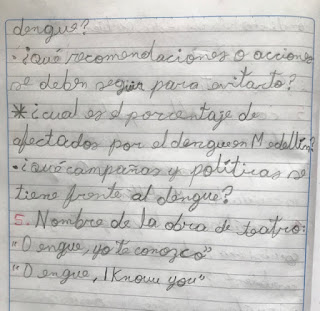 dengue?
· ¿qué recomendaciones o acciones
se deben seguir para evitarlo?
* ¿cual es el porcentaje de
afectados por el dengue en Medellín?
· ¿qué campañas y políticas se
tiene frente al dengue?
5. Nombre de la obra de teatro:
"Dengue, yo te conozco"
"Dengue, I Know you"